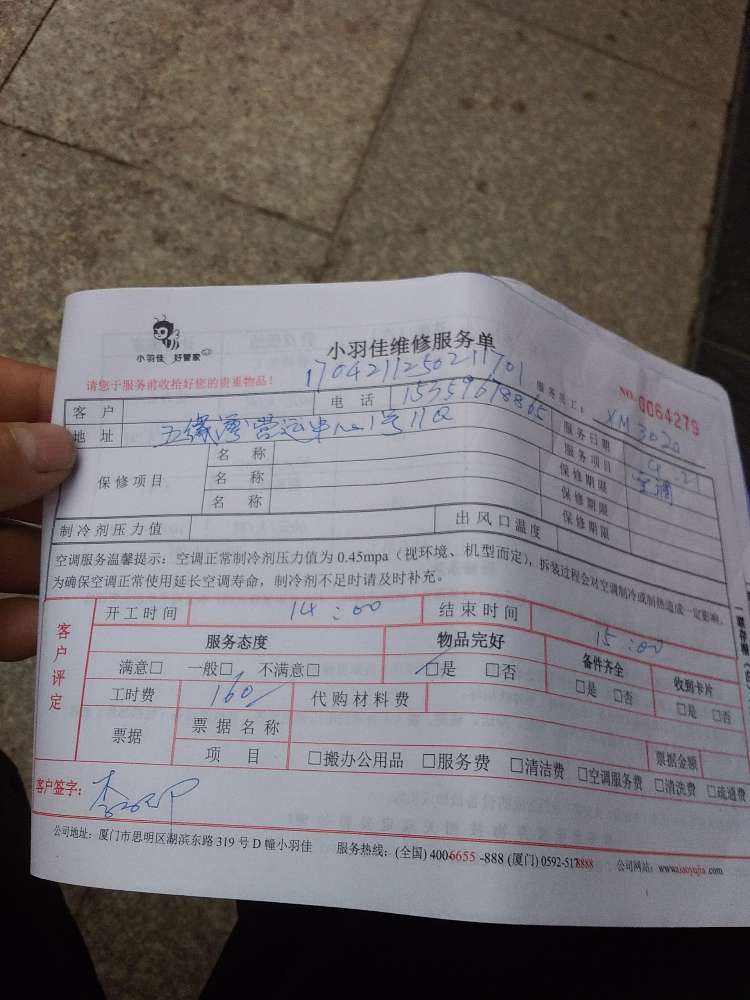 小羽佳 好管家
小羽佳维修服务单
请您于服务前收拾好您的贵重物品！
1704211250211701
服务员工： XM3020
NO. 0064279
客户 电话 15359678865 服务日期 4.21
地址 五缘湾营运中心1号11区 服务项目 空调
保修项目 名称 保修期限
名称 保修期限
名称 保修期限
制冷剂压力值 出风口温度
空调服务温馨提示：空调正常制冷剂压力值为 0.45mpa（视环境、机型而定），拆装过程会对空调制冷或制热造成一定影响。
为确保空调正常使用延长空调寿命，制冷剂不足时请及时补充。
客户评定
开工时间 14:00 结束时间 15:00
服务态度 物品完好 备件齐全 收到卡片
满意□ 一般□ 不满意□ □是 □否 □是 □否 □是 □否
工时费 160 代购材料费
票据 票据名称 票据金额
项目 □搬办公用品 □服务费 □清洁费 □空调服务费 □清洗费 □疏通费
客户签字：
公司地址：厦门市思明区湖滨东路 319 号 D 幢小羽佳 服务热线：(全国) 4006655 -888 (厦门) 0592-5178888 公司网站：www.xiaoyujia.com